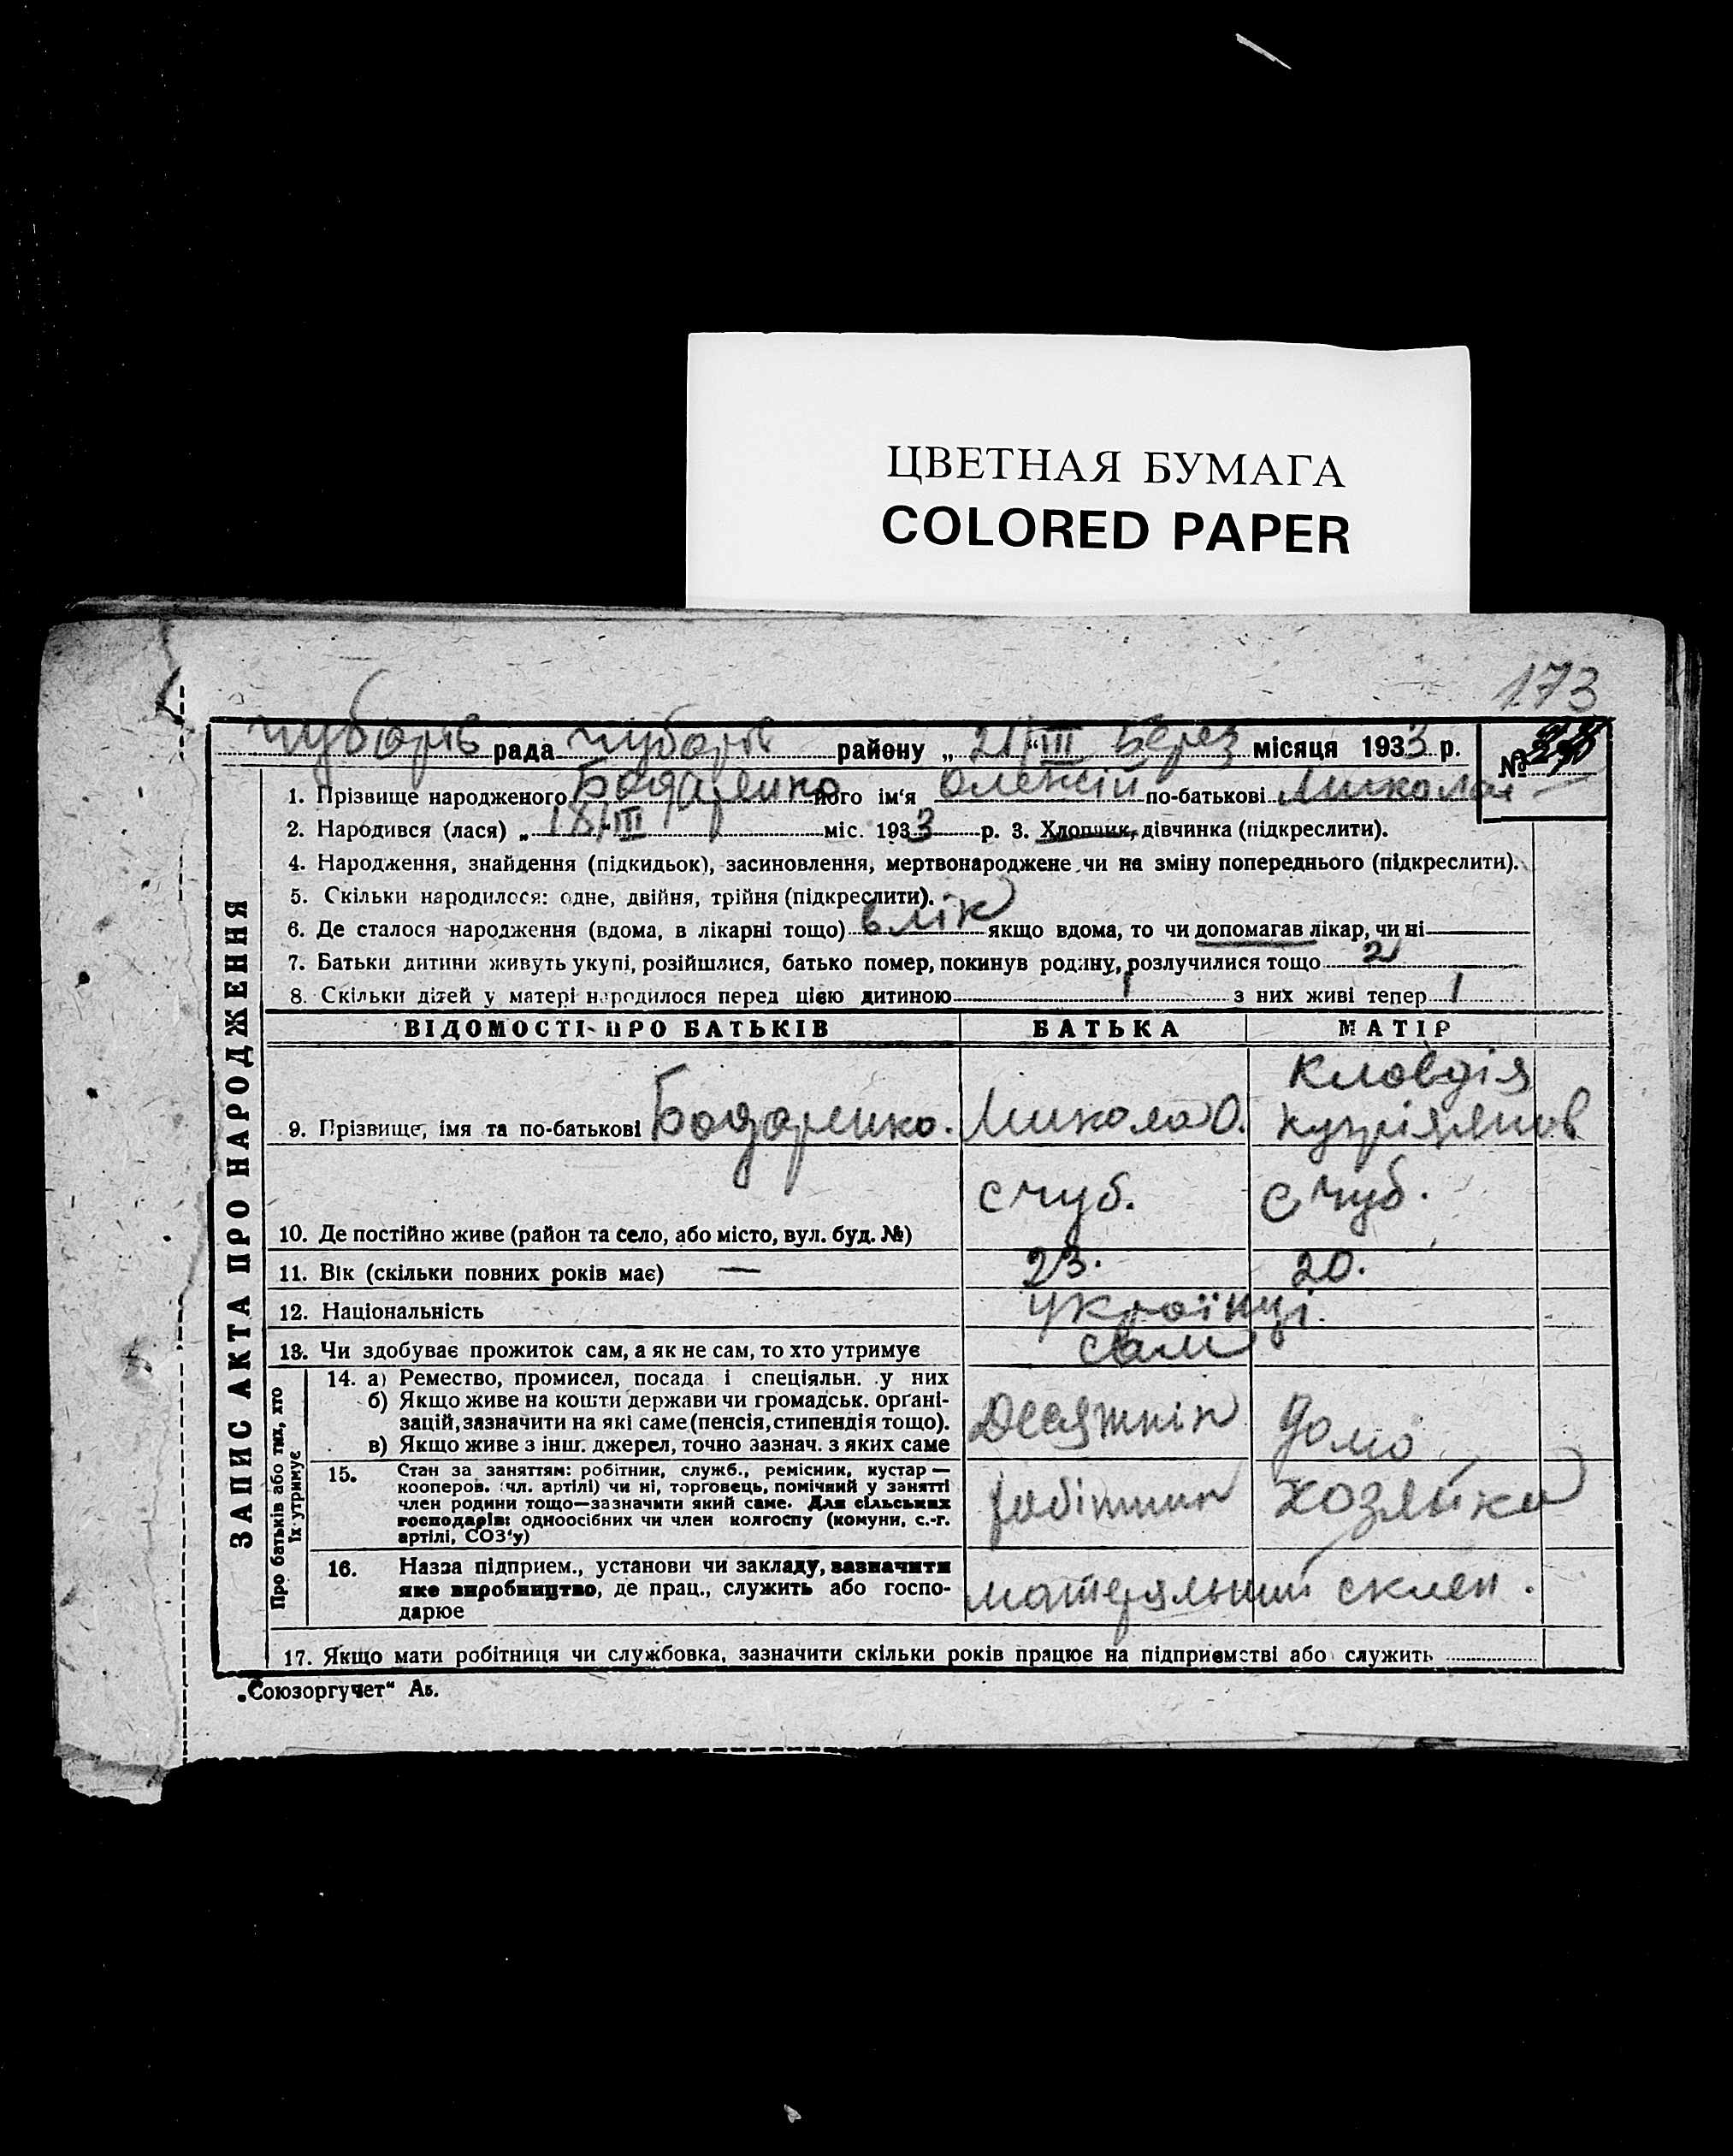 ЦВЕТНАЯ БУМАГА
COLORED PAPER
173
Чубарів рада Чубарів району „21/III“ Берез місяця 1933 р. №
1. Прізвище народженого Бондаренко його ім'я Олексій по-батькові Микола
2. Народився (лася) „18/III міс. 1933 р. 3. Хлопчик, дівчинка (підкреслити).
4. Народження, знайдення (підкидьок), засиновлення, мертвонароджене чи на зміну попереднього (підкреслити).
5. Скільки народилося: одне, двійня, трійня (підкреслити).
6. Де сталося народження (вдома, в лікарні тощо) в лік якщо вдома, то чи допомагав лікар, чи ні
7. Батьки дитини живуть укупі, розійшлися, батько помер, покинув родину, розлучилися тощо 2
8. Скільки дітей у матері народилося перед цією дитиною 1 з них живі тепер 1
ЗАПИС АКТА ПРО НАРОДЖЕННЯ
ВІДОМОСТІ ПРО БАТЬКІВ БАТЬКА МАТІР
Кловдія
9. Прізвище, імя та по-батькові Бондаренко. Микола О.
с Чуб. с Чуб.
10. Де постійно живе (район та село, або місто, вул. буд. №)
11. Вік (скільки повних років має) — 23. 20.
12. Національність українці.
13. Чи здобуває прожиток сам, а як не сам, то хто утримує сам
Про батьків або тих, хто їх утримує
14. а) Ремество, промисел, посада і спеціяльн. у них
б) Якщо живе на кошти держави чи громадськ. органі-
зацій, зазначити на які саме (пенсія, стипендія тощо).
в) Якщо живе з інш. джерел, точно зазнач. з яких саме
Десятнік домо
15. Стан за заняттям: робітник, служб., ремісник, кустар —
кооперов. (чл. артілі) чи ні, торговець, помічний у занятті
член родини тощо—зазначити який саме. Для сільських
господарів: одноосібних чи член колгоспу (комуни, с.-г.
артілі, СОЗ'у)
робітник хозяйка
16. Назва підприєм., установи чи закладу, зазначити
яке виробництво, де прац., служить або госпо-
дарює
матеряльний склеп.
17. Якщо мати робітниця чи службовка, зазначити скільки років працює на підприємстві або служить
„Союзоргучет“ Аз.